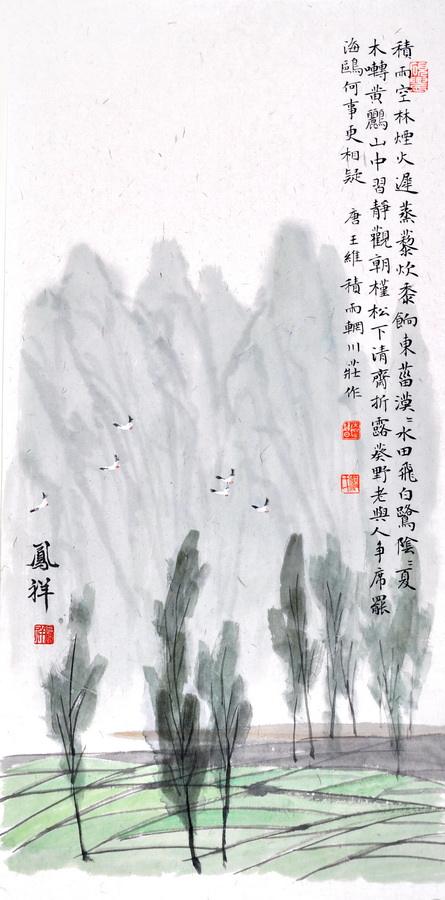 積雨空林煙火遲蒸藜炊黍餉東菑漠〻水田飛白鷺陰〻夏
木囀黄鸝山中習靜觀朝槿松下清齋折露葵野老與人争席罷
海鷗何事更相疑 唐王維 積雨輞川莊作
鳳祥